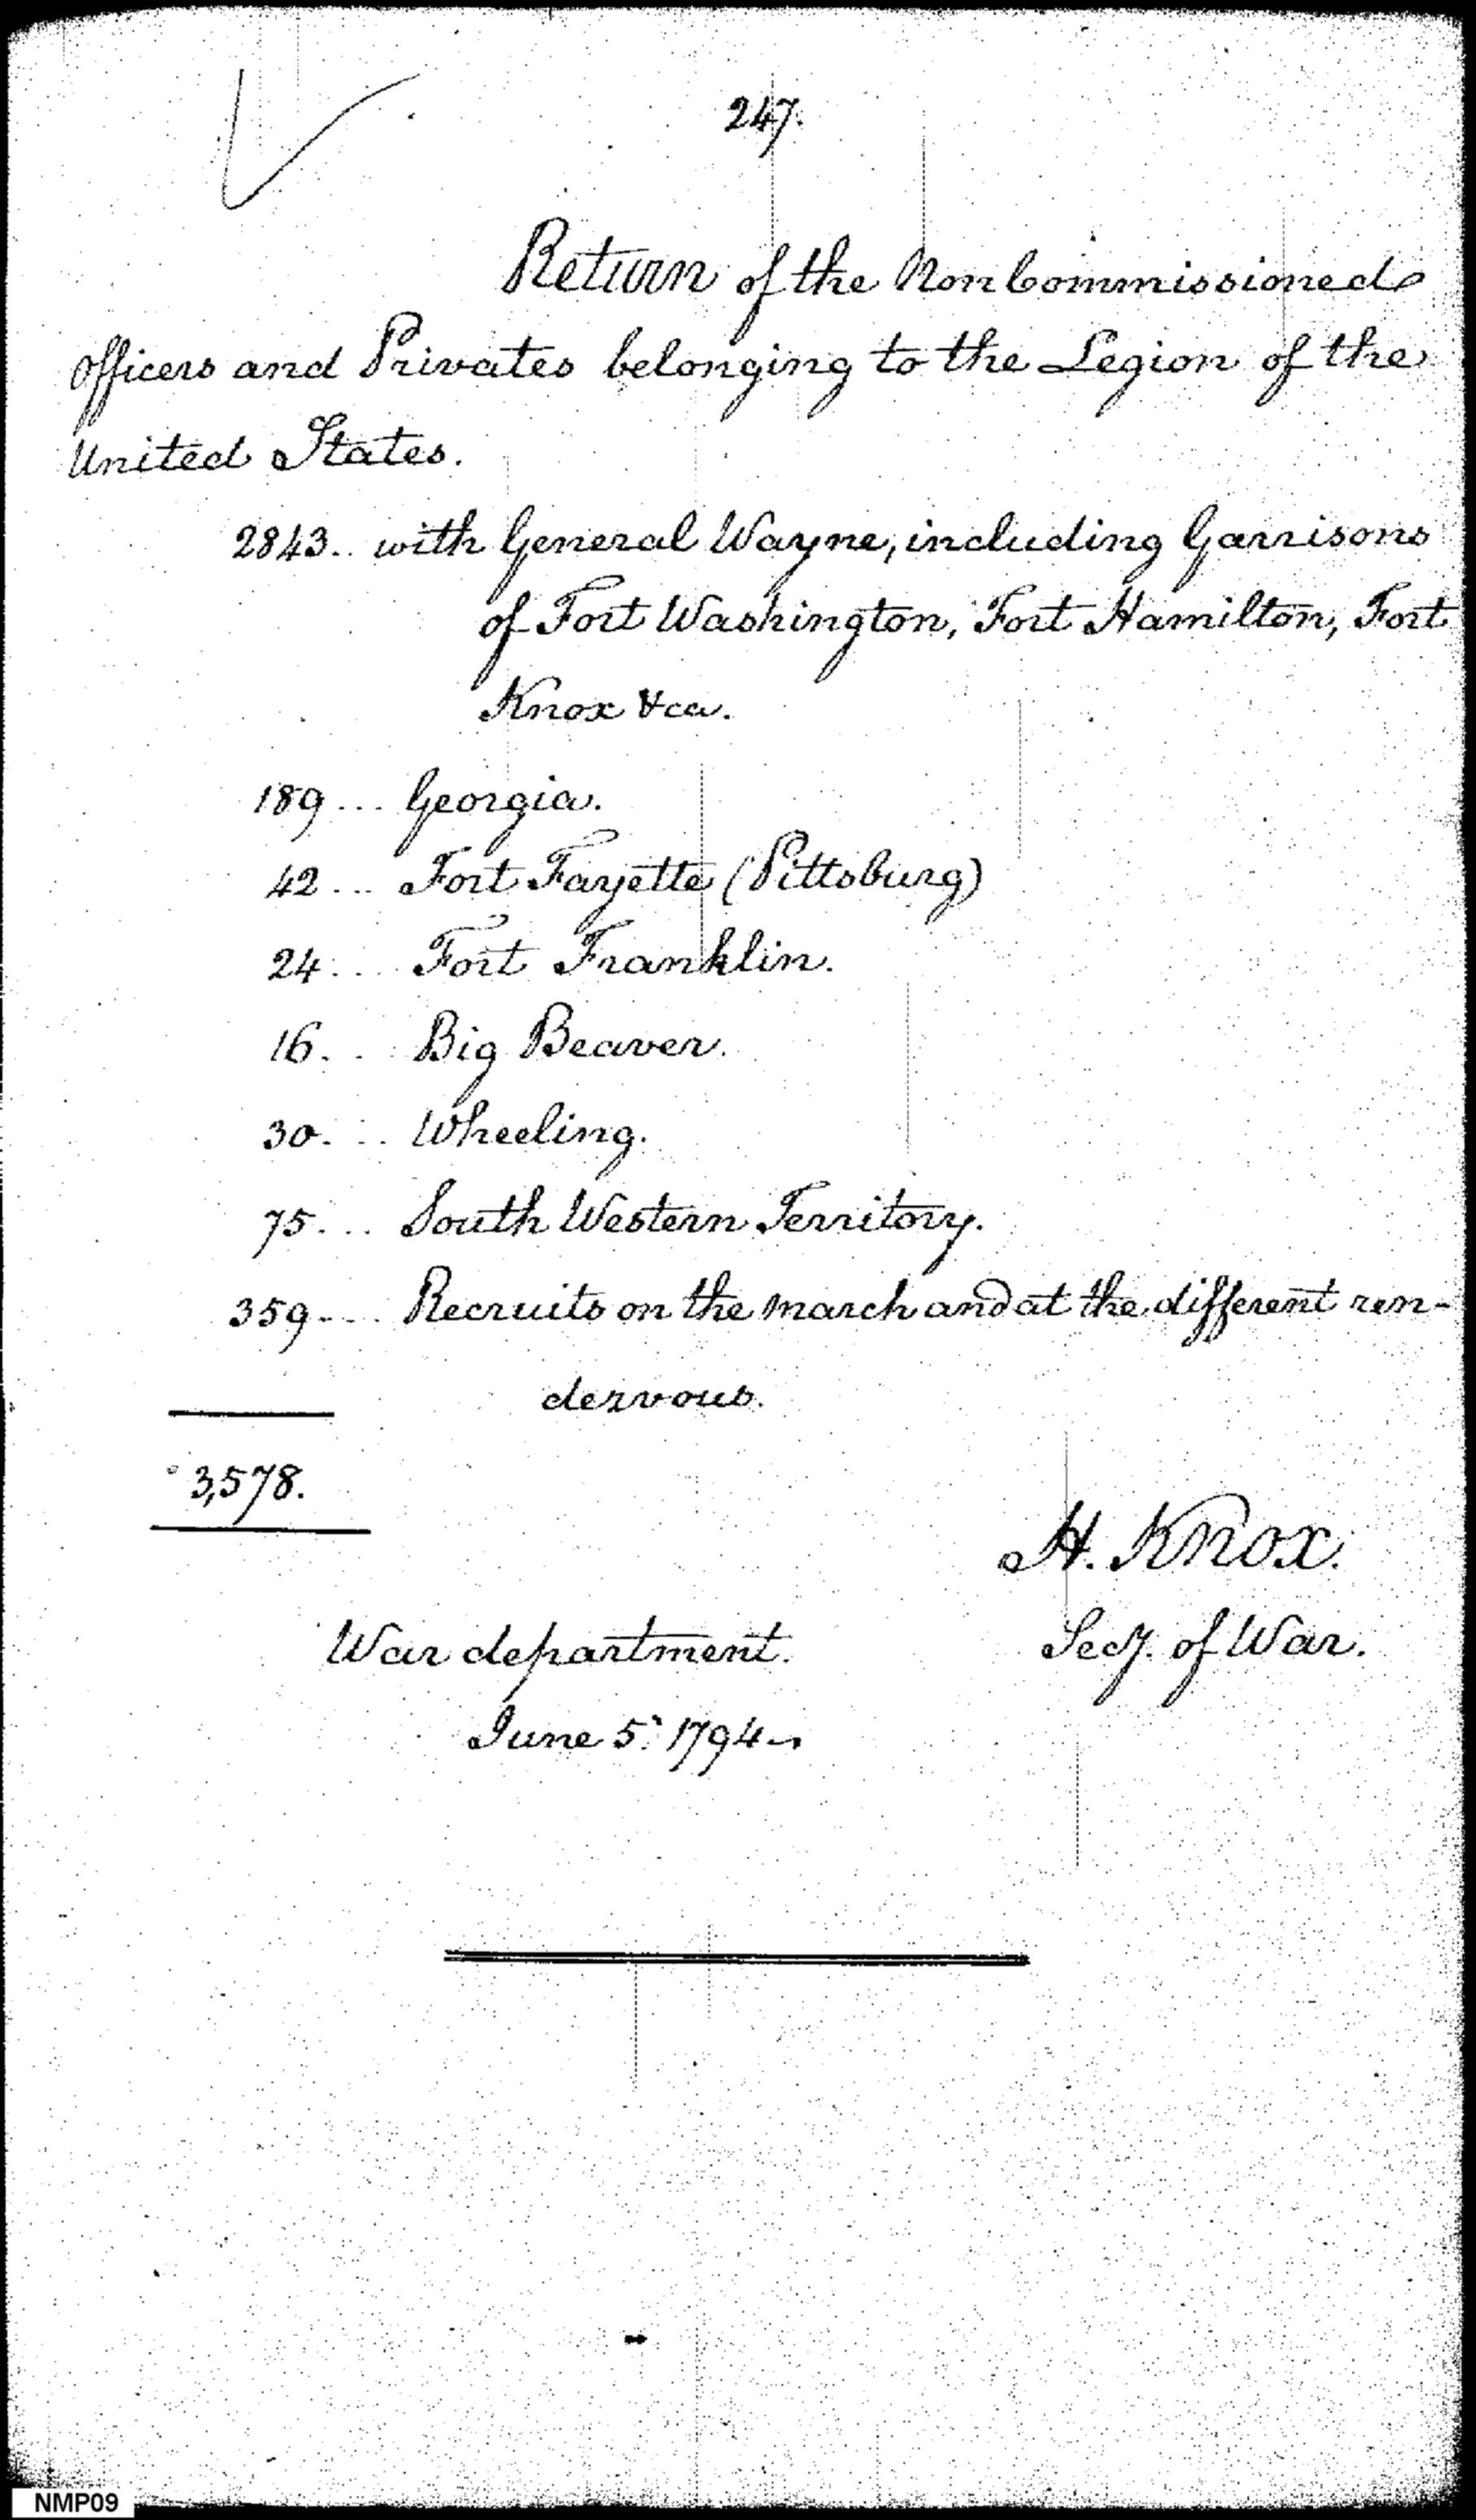 247.
Return of the Non Commissioned
officers and Privates belonging to the Legion of the
United States.
2843.. with General Wayne, including Garrisons
of Fort Washington, Fort Hamilton, Fort
Knox &ca.
189... Georgia.
42... Fort Fayette (Pittsburg)
24... Fort Franklin.
16... Big Beaver.
30... Wheeling.
75... South Western Territory.
359.... Recruits on the march and at the different ren-
dezvous.
3,578.
H. Knox.
War department. Secy. of War.
June 5. 1794
NMP09